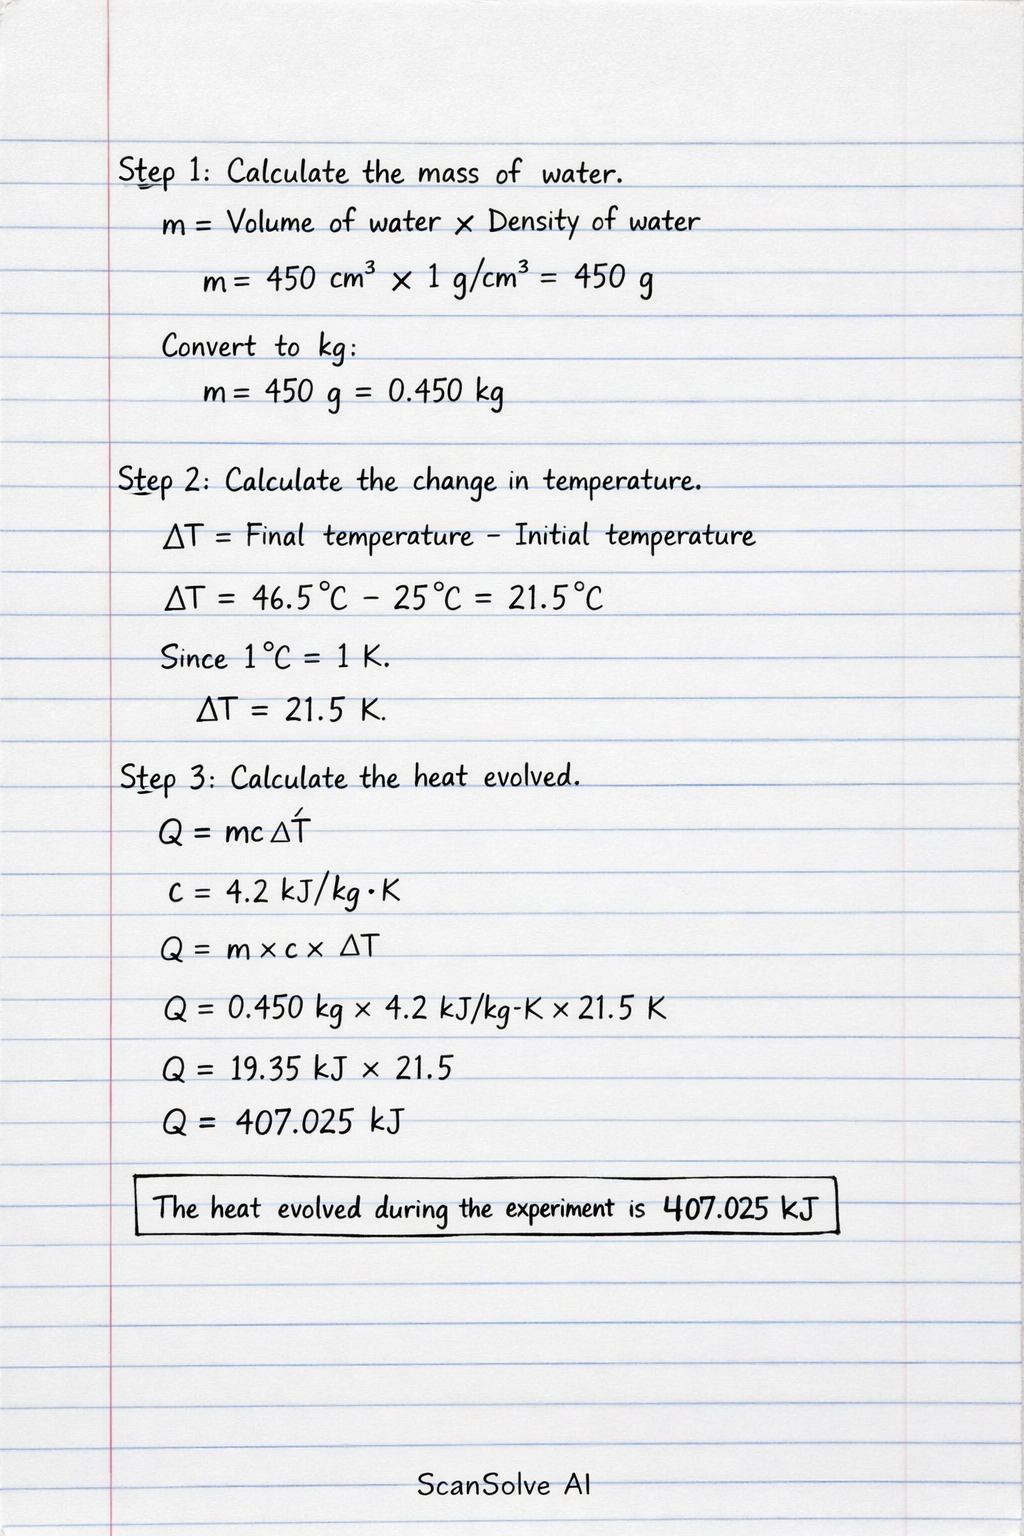 Step 1: Calculate the mass of water.
m = Volume of water × Density of water
m = 450 cm³ × 1 g/cm³ = 450 g
Convert to kg:
m = 450 g = 0.450 kg
Step 2: Calculate the change in temperature.
ΔT = Final temperature - Initial temperature
ΔT = 46.5°C - 25°C = 21.5°C
Since 1°C = 1 K.
ΔT = 21.5 K.
Step 3: Calculate the heat evolved.
Q = mcΔT
c = 4.2 kJ/kg·K
Q = m × c × ΔT
Q = 0.450 kg × 4.2 kJ/kg-K × 21.5 K
Q = 19.35 kJ × 21.5
Q = 407.025 kJ
The heat evolved during the experiment is 407.025 kJ
ScanSolve AI